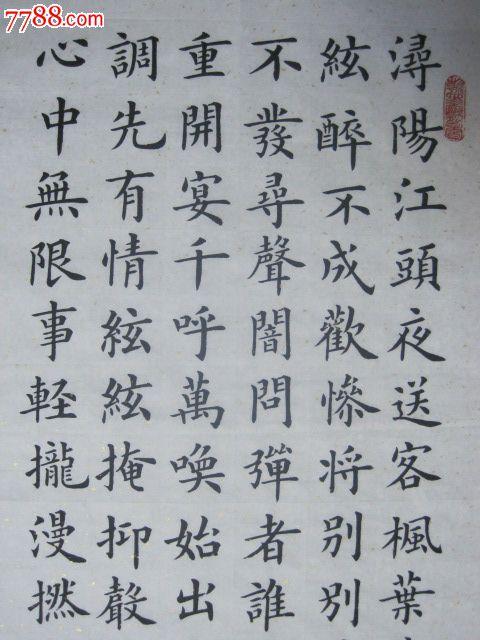 7788.com
潯陽江頭夜送客楓葉
絃醉不成歡慘将別別
不發尋聲闇問彈者誰
重開宴千呼萬喚始出
調先有情絃絃掩抑聲
心中無限事軽攏漫撚